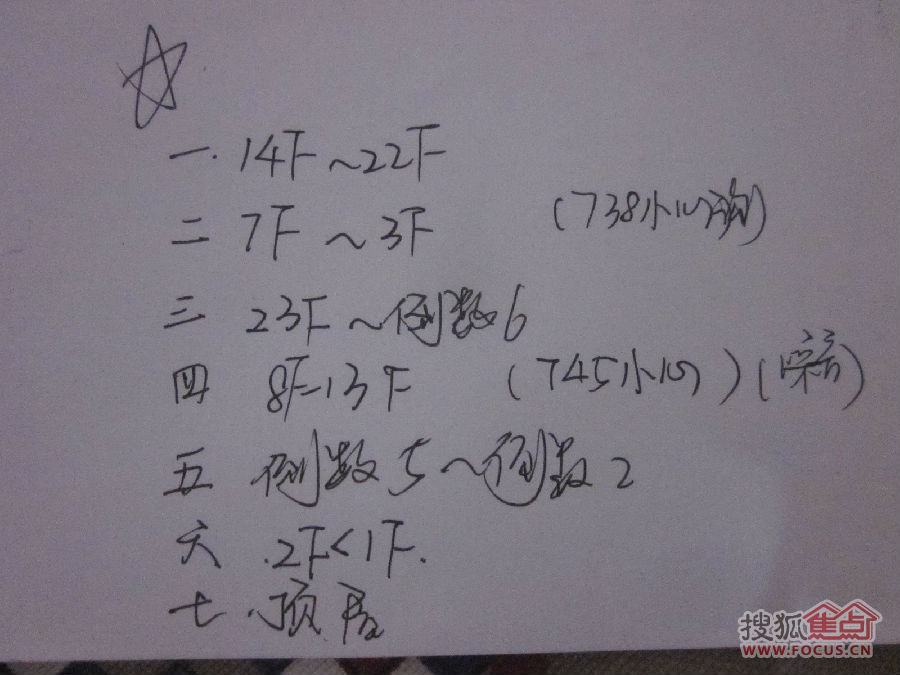 一. 14F~22F
二 7F~3F (738小心
三 23F~倒数6
四 8F-13F (745小心)
五 倒数5~倒数2
六 .2F<1F.
七.顶层
搜狐焦点
WWW.FOCUS.CN